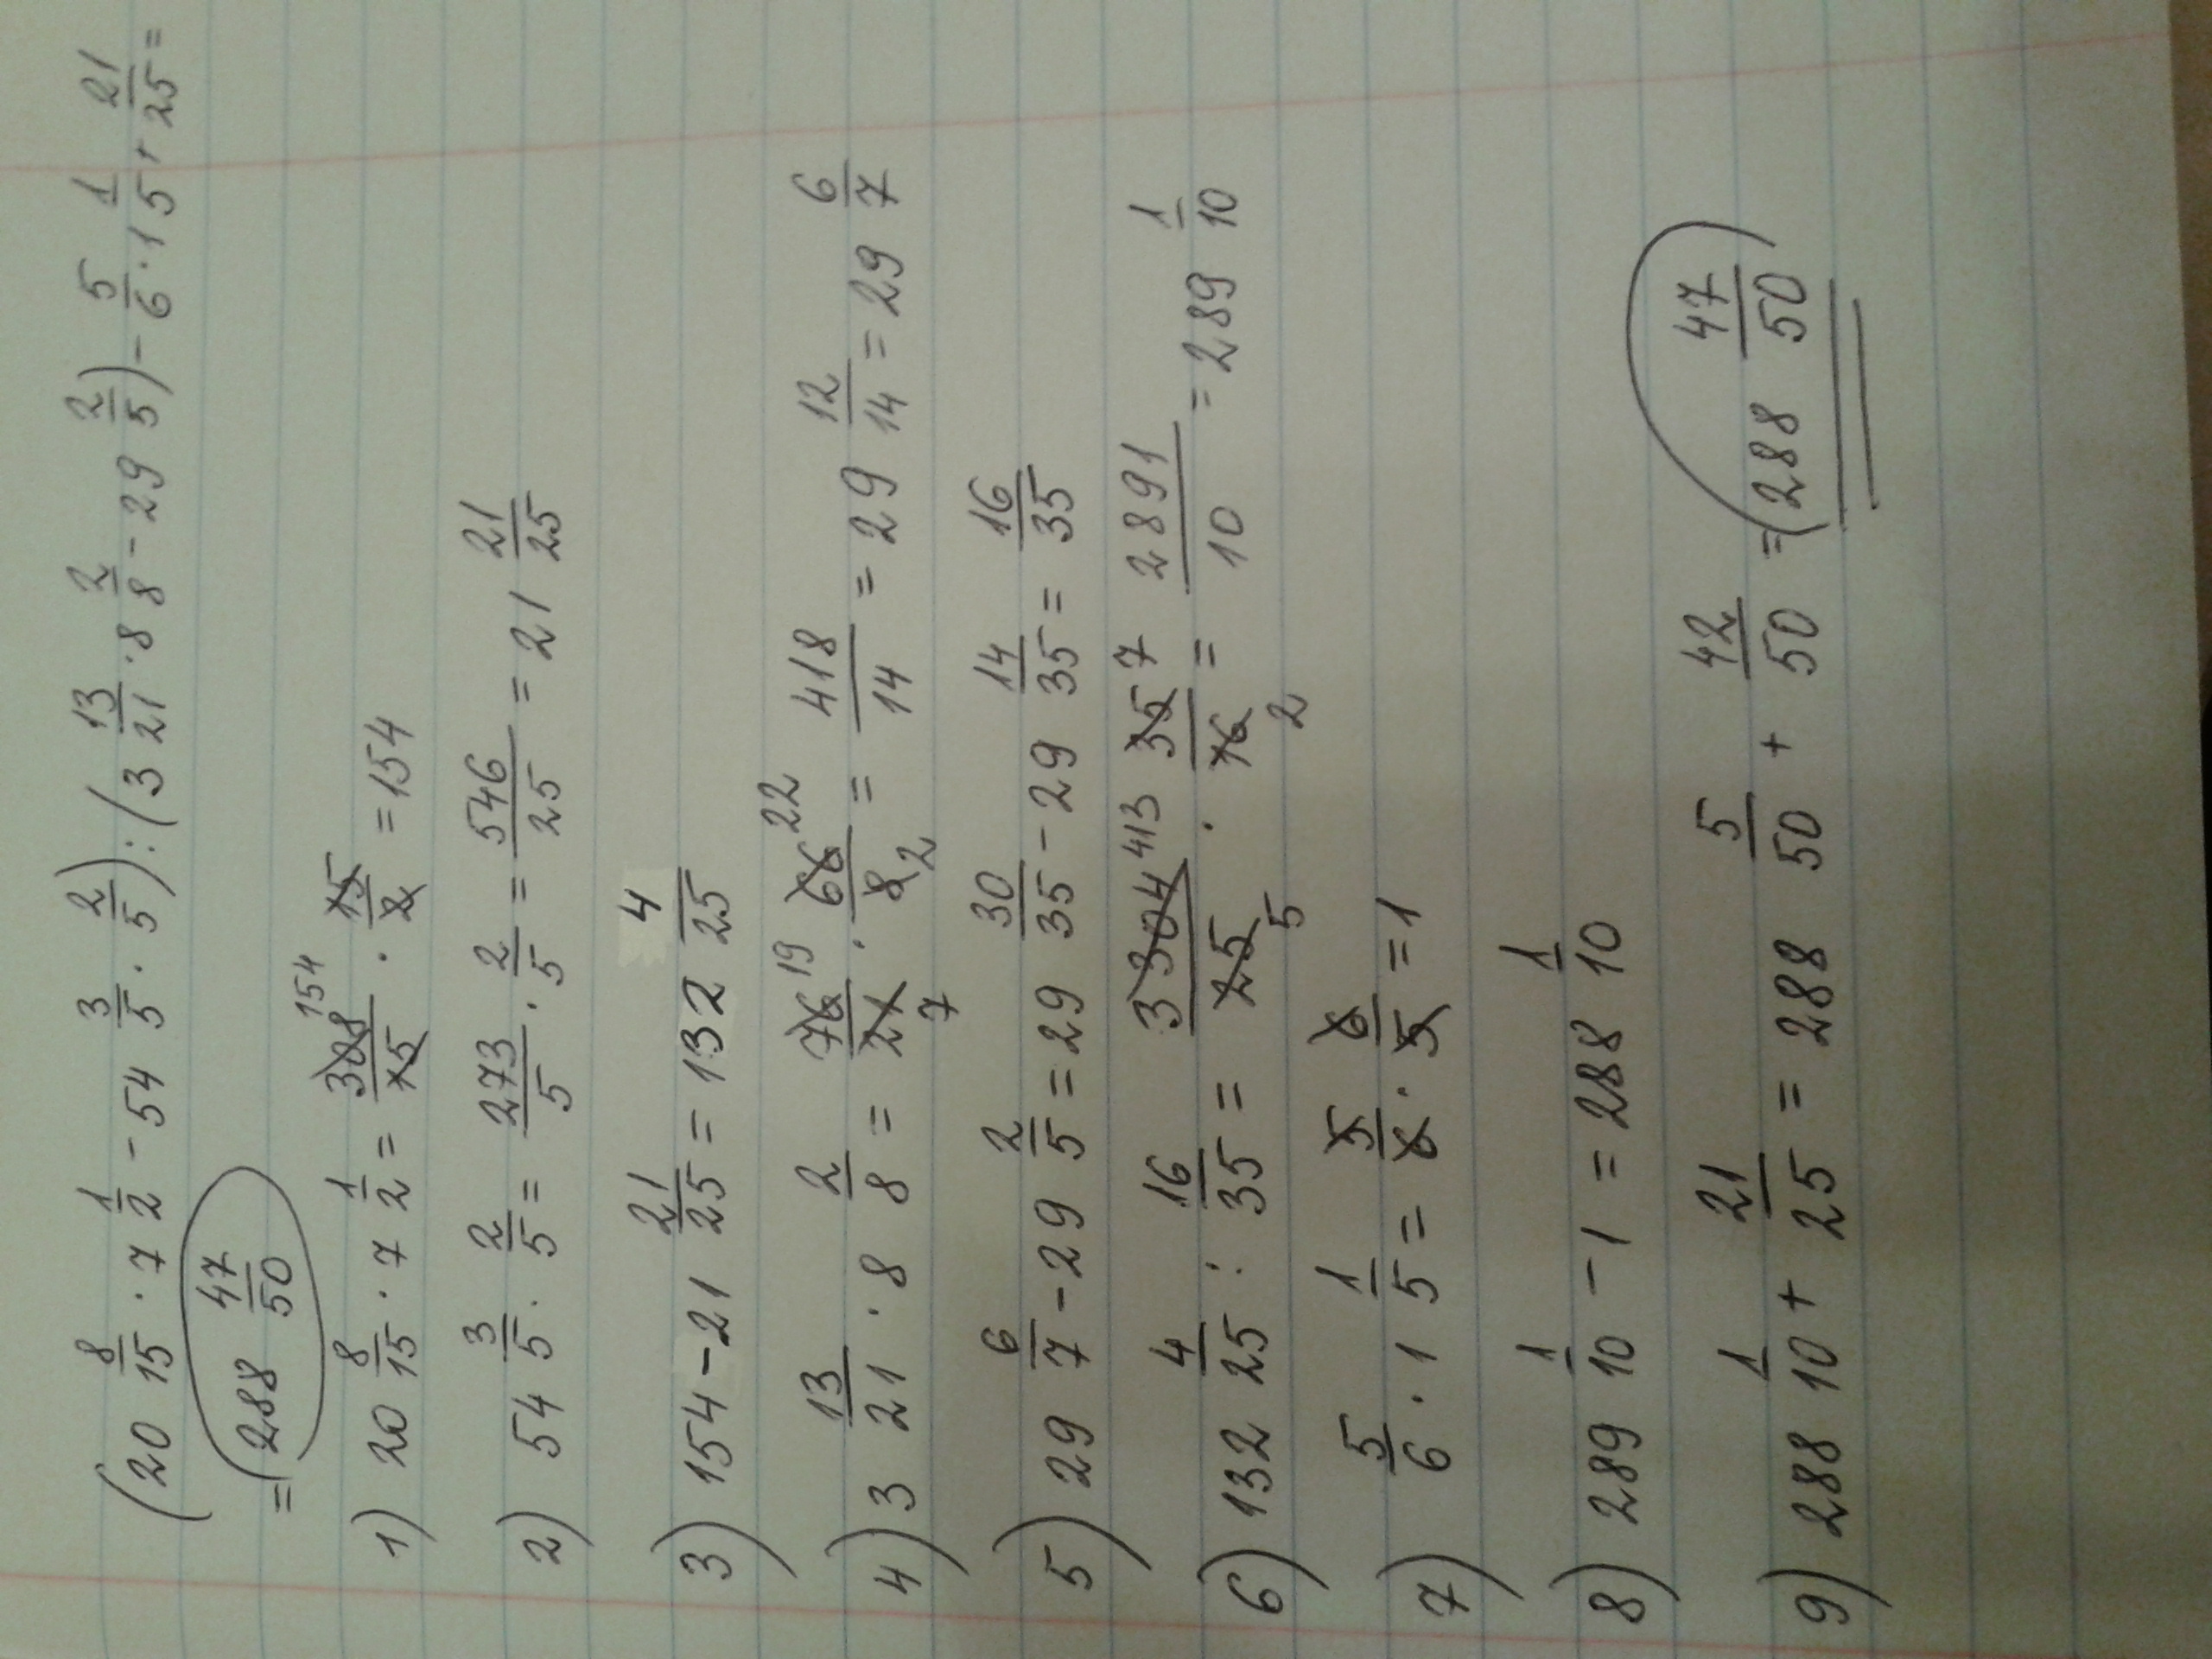 (20 8/15 · 7 1/2 - 54 3/5 · 2/5) : (3 13/21 · 8 2/8 - 29 2/5) - 5/6 · 1 1/5 + 21/25 =
= (288 47/50
1) 20 8/15 · 7 1/2 = 308/15 154 · 15/2 = 154
2) 54 3/5 · 2/5 = 273/5 · 2/5 = 546/25 = 21 21/25
3) 154 - 21 21/25 = 132 4/25
4) 3 13/21 · 8 2/8 = 76 19/21 7 · 66 22/8 2 = 418/14 = 29 12/14 = 29 6/7
5) 29 6/7 - 29 2/5 = 29 30/35 - 29 14/35 = 16/35
6) 132 4/25 : 16/35 = 3304 413/25 5 · 35 7/16 2 = 2891/10 = 289 1/10
7) 5/6 · 1 1/5 = 5/6 · 6/5 = 1
8) 289 1/10 - 1 = 288 1/10
9) 288 1/10 + 21/25 = 288 5/50 + 42/50 = (288 47/50)